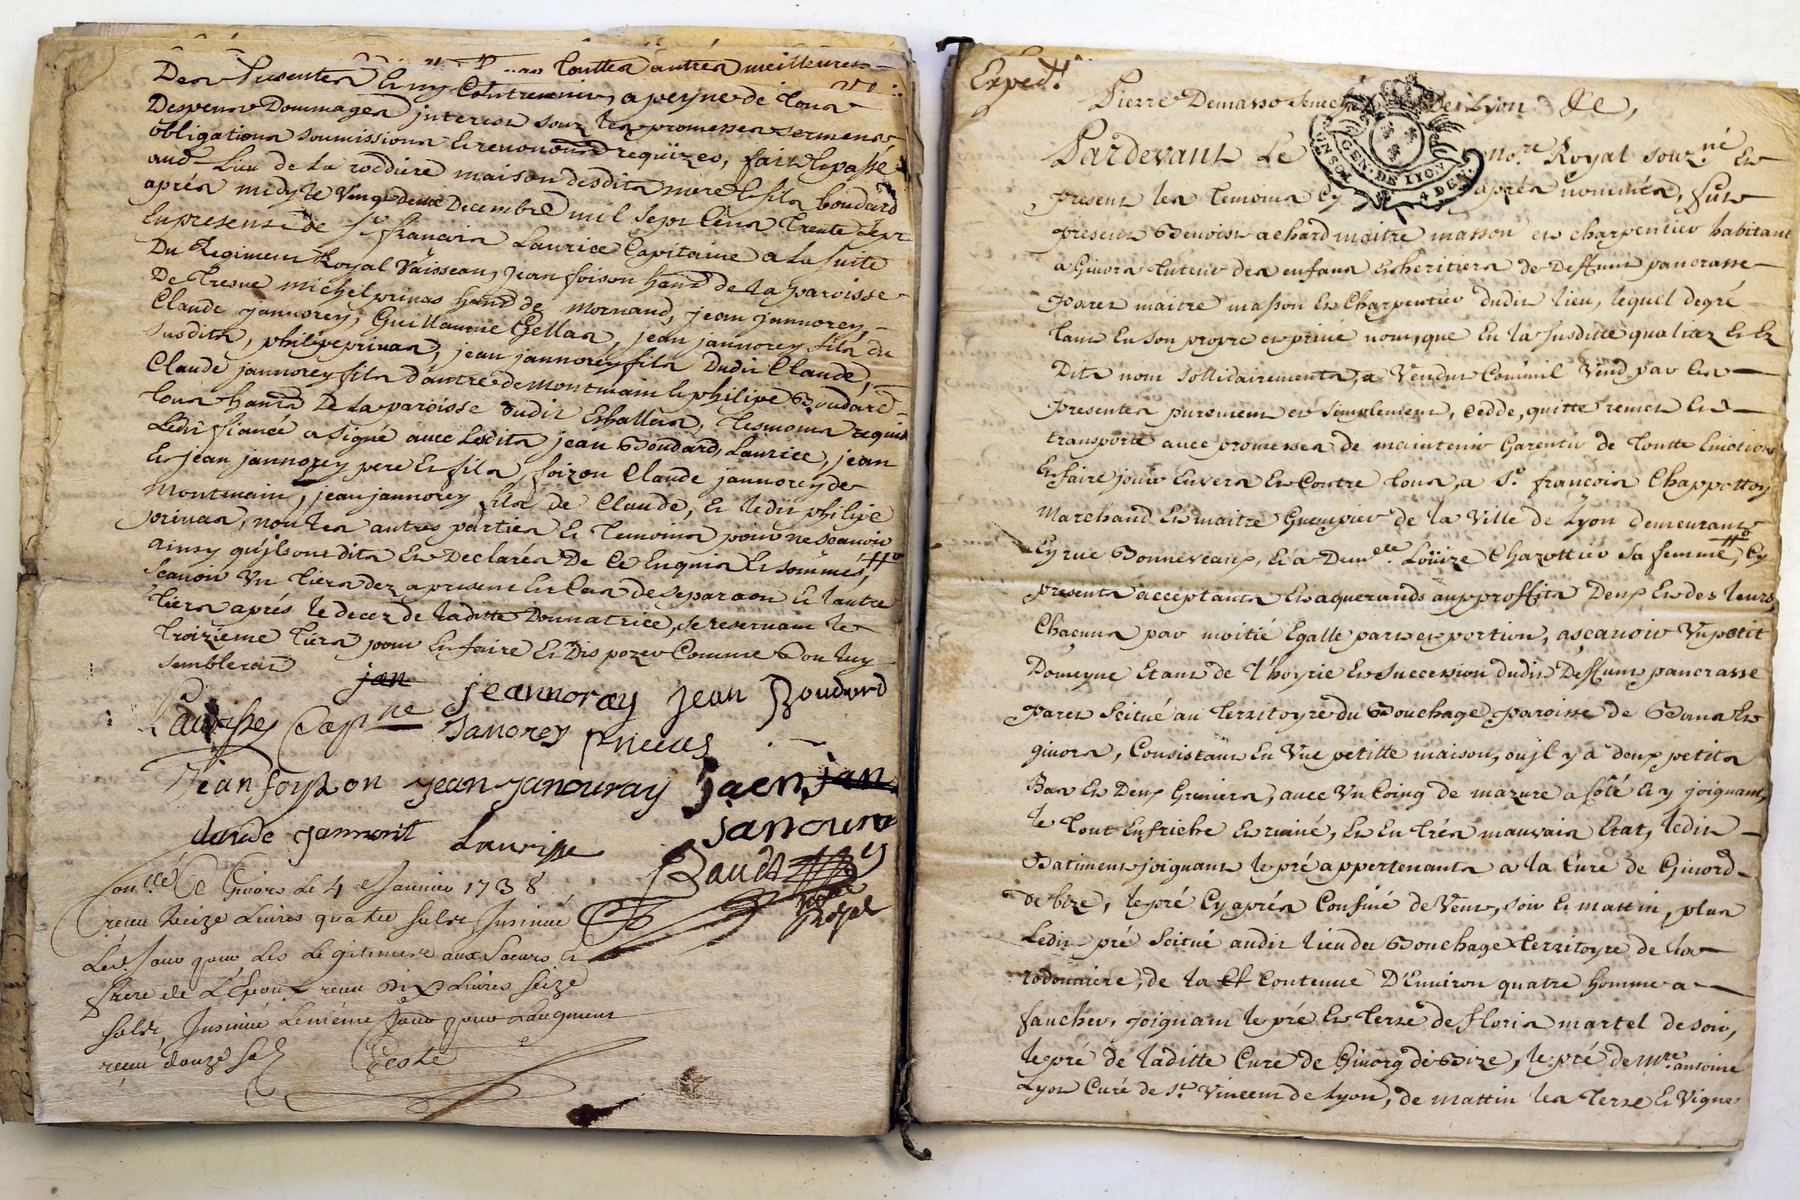 touttes autres meilleures
Des presentes Et ny Contrevenir, a peyne de tous
Despens Dommages interest sous les promesses sermens
obligations soumissions Et renonõns requizes, fait Et passé
aud. Lieu de la rodiere maison desdits mere Et fils boudard
aprés midy le Vingt Decembre mil Sept Cens trente Sept
En presens de Sr. francois Laurice Capitaine a la suite
Du Regiment Royal Vaisseau, jean foison hant de la paroisse
De michel privas hant de Mornand, jean jannorey,
Claude jannorey, Guillaume Gellas, jean jannorey fils du
Susdits, philipe privas, jean jannorey fils Dudit Claude,
Claude jannorey fils d'autre de Montmain Et philipe Boudard
tous hants De la paroisse dudit Echallas, tesmoins requis
Ledit fiancé a signé avec Lesdits jean Boudard, Laurice, jean
Et jean jannorey pere Et fils, foizon Claude jannorey de
Montmain, jean jannorey fils de Claude, Et ledit philipe
privas, non les autres parties Et temoins pour ne scavoir
ainsy qu'jls ont dits Et Declarés De Ce Enquis Et sommés,
scavoir Un tiers dez a present En Cas de separaõn Et l'autre
tiers aprés le decez de laditte Donnatrice, se reservant le
troizieme tiers pour En faire Et Dis pozer Comme Bon luy
semblerat
jan jeannoray jean Boudard
Laurisse Cap ne Janorey privas
Jean foyson jean janouray jaen jan
claude jannorit Laurisse janoura
Baudt
Con.llé A Givors Le 4 e Janvier 1738
receu treize Livres quatre sols Insinué
Led. Jour pour les Legitimes aux soeurs et
frere de L'Epoux receu Dix Livres seize
sols, Insinué Le même Jour pour L'augment
receu douze sols
Royal
Exped.t
Pierre Demasso Senechal de Lyon &c,
GEN. DE LYON
Pardevant Le no.re Royal souz.né Et
present les temoins Cy aprés nommés, fut
present Benoist achard maitre masson et charpentier habitant
a Givors tuteur des enfans Et heritiers de Deffunt pancrasse
paret maitre masson Et Charpentier dudit lieu, lequel de gré
tant En son propre et privé nom, que En la susditte qualitez Et Ez
Dits nom sollidairement, a Vendu Comme il Vend par Ces
presentes purement et simplement, cedde, quitte remet Et
transporte avec promesses de maintenir Garentir de toutte Eviction
Et faire jouir Envers Et Contre tous, a Sr. francois Chappottoy
Marchand Et maitre Guimpier de la Ville de Lyon demeurant
Cy rue Bonneveaux, Et a Dem.elle Loüize Charottier sa femme, Cy
presents acceptants Et aquerands au proffits D'eux Et des leurs
Chacuns par moitié Egalle part et portion, ascavoir Un petit
Domeyne Etant de l'hoyrie Et succession dudit Deffunt pancrasse
paret scitué au territoyre du Bouchage paroisse de Bans Et
givors, Consistant En Une petitte maison, ou jl y a deux petits
Bas Et Deux Greniers, avec Un Coing de mazure a côté Et y joignant,
le tout En friche Et ruiné, Et En trés mauvais Etat, ledit
Batiment joignant le pré appertenants a la Cure de Givord
de bize, le pré Cy aprés Confiné de Vent, soir Et mattin, plus
Ledit pré scitué audit lieu du Bouchage territoyre de la
rodonniere, de la Contenue D'Environ quatre homme a
faucher, joignant le pré Et terre de floris martel de soir,
le pré de laditte Cure de Givorg de Bize, le pré de Mre. antoine
Lyon Curé de St. Vincent de Lyon, de mattin les terre Et Vigne